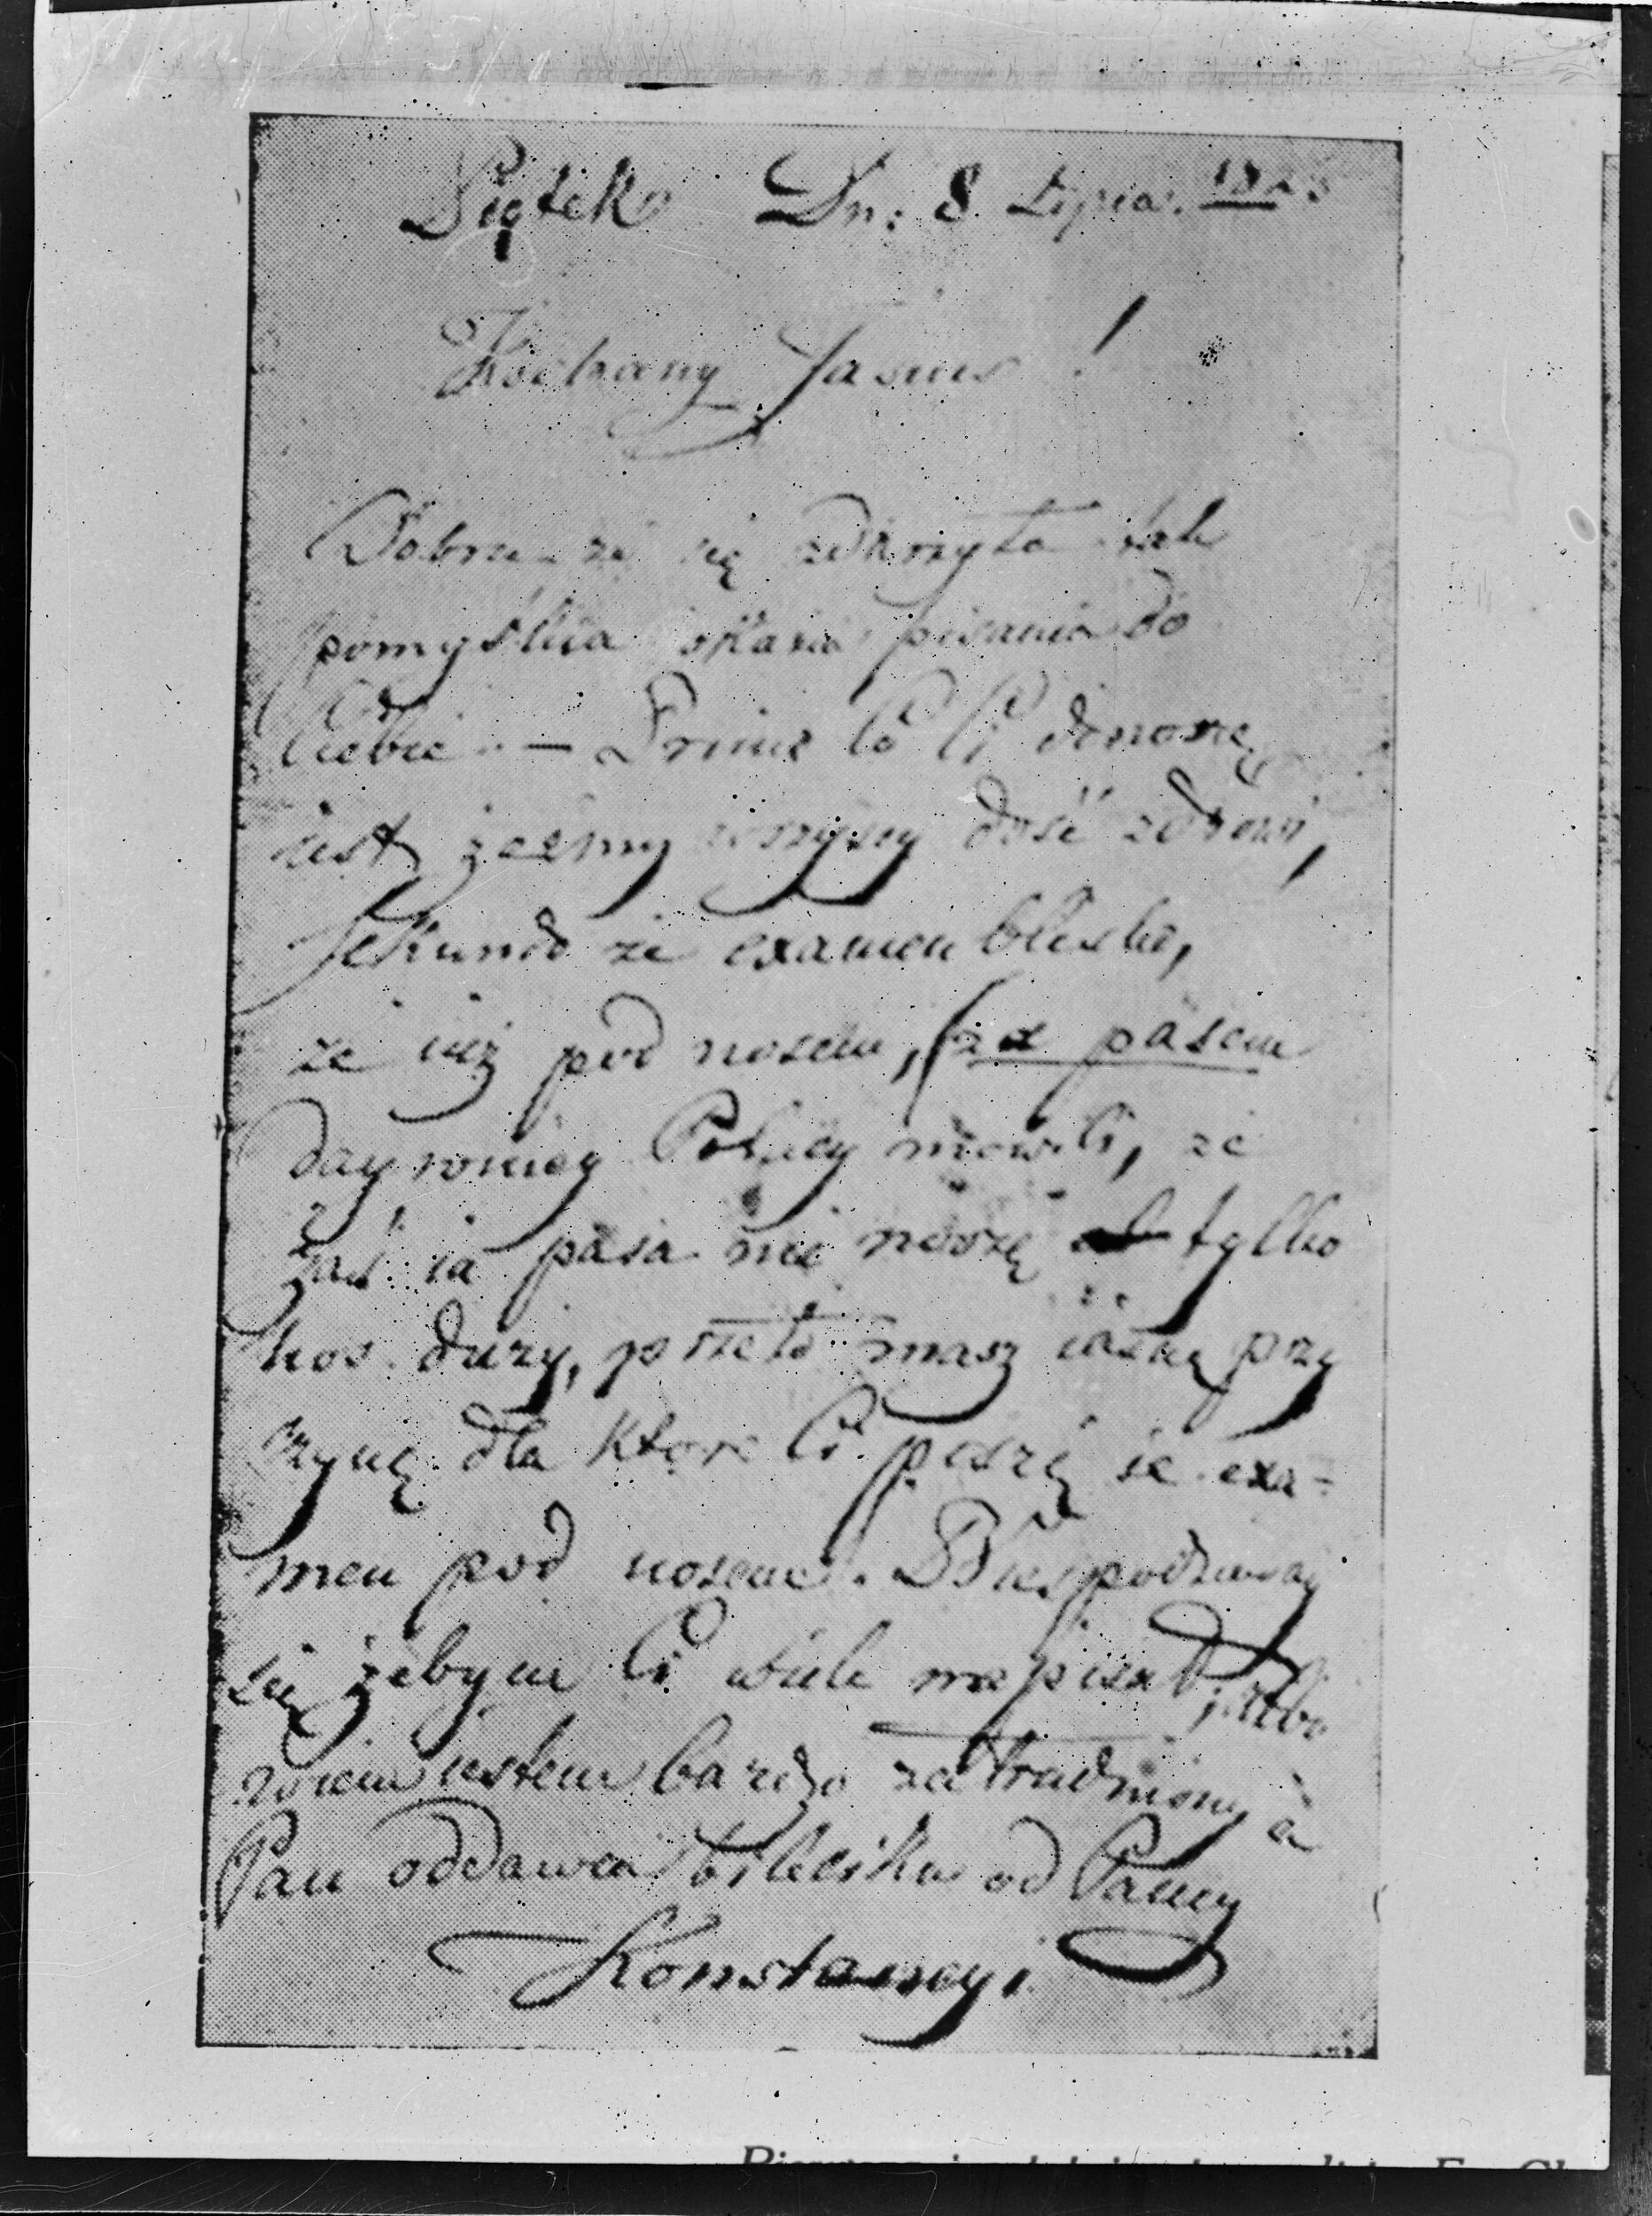 Piątek Dn: 8. Lipca. 1825
Kochany Jasiu !
Dobrze że się zdarzyła tak
pomyślna okazia pisania do
Ciebie. — Primo Co Ci donoszę
iest żeśmy wszyscy dość zdrowi,
Sekundo że examen blisko,
że iuż pod nosem, (za pasem
daywniey Polacy mówili, że
zaś ia pasa nie noszę tylko
nos duży, przeto masz iasną przy
czynę dla które Ci piszę iż exa-
men pod nosem). Niespodziway
się żebym Ci wiele napisał, albo
wiem iestem bardzo zatrudniony a
Pan oddawca bilecika od Panny
Konstancyi